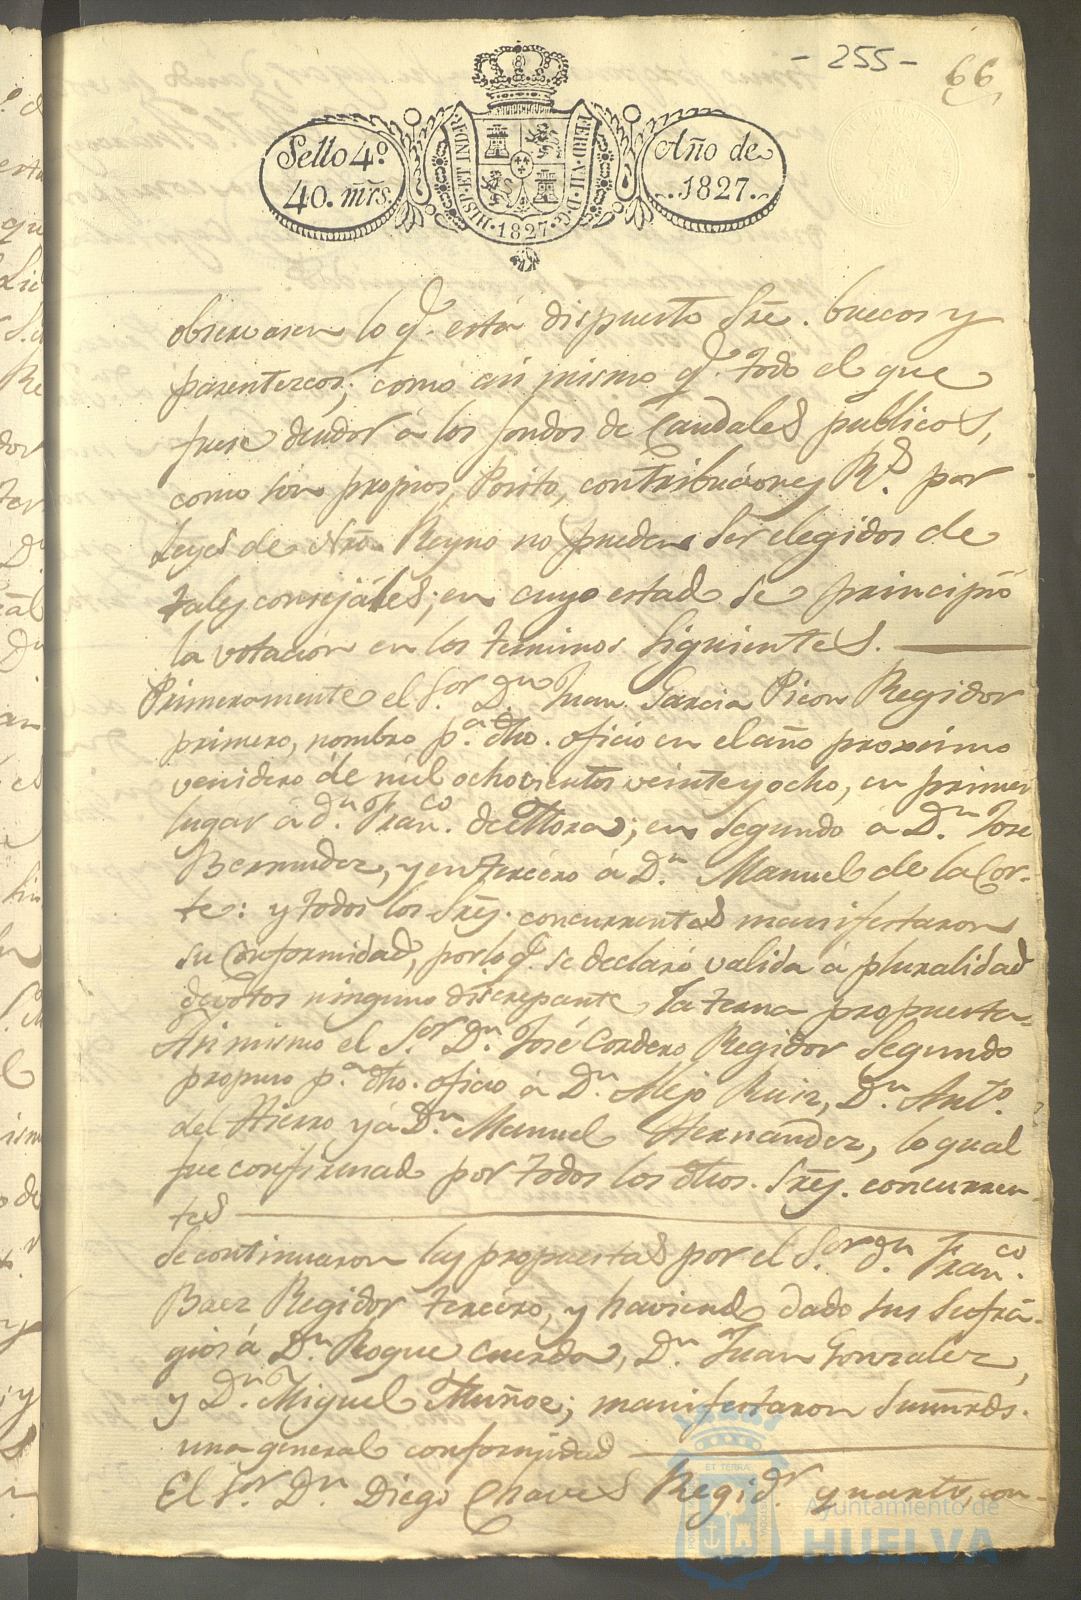 - 255 -
66
Sello 4.º
40. mrs.
HISP. ET IND. R.
FERD. VII. D. G.
1827
Año de
1827.
observasen lo q.e está dispuesto Sre. huecos y
parentezcos; como asi mismo q.e todo el que
fuese deudor á los fondos de Caudales publicos,
como son propios, Posito, contribuciones R.s por
Leyes de Nro. Reyno no pueden ser elegidos de
tales consejáles; en cuyo estado se principió
la votacion en los terminos siguientes.
Primeramente el S.or D.n Juan Garcia Picon Regidor
primero, nombro p.a dho. oficio en el año proximo
venidero de mil ochocientos veinte y ocho, en primer
lugar á d.n Fran.co de Mora; en segundo á D.n Jose
Bermudez, y en tercero á D.n Manuel de la Cor-
te: y todos los Sres. concurrentes manifestaron
su conformidad, por lo q.e se declaró valida á pluralidad
de votos ninguno discrepante, la terna propuesta.
Asi mismo el S.or D.n José Cordero Regidor Segundo
propuso p.a dho. oficio á D.n Alejo Ruiz, D.n Ant.o
del Hierro y á D.n Manuel Hernandez, lo qual
fue confirmado por todos los dhos. Sres. concurren-
tes
Se continuaron las propuestas por el S.or D.n Fran.co
Baez Regidor tercero, y haviendo dado sus sufra-
gios á D.n Roque Cuerda, D.n Juan Gonzalez,
y D.n Miguel Muñoz; manifestaron sus mrds.
una general conformidad
El S.or D.n Diego Chaves Regid.r quarto, con-
ET TERRÆ
Ayuntamiento de
HUELVA